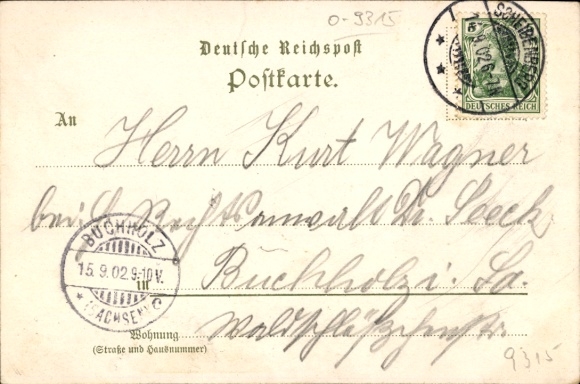 0-9315
Deutsche Reichspost
Postkarte.
SCHEIBENBERG
5
DEUTSCHES REICH
An
Herrn Kurt Wagner
bei Rechtsanwalt Dr.
Buchholz i. Sa.
in
BUCHHOLZ
15.9.02 9-10V.
* (SACHSEN) C
Wohnung
(Straße und Hausnummer)
9315